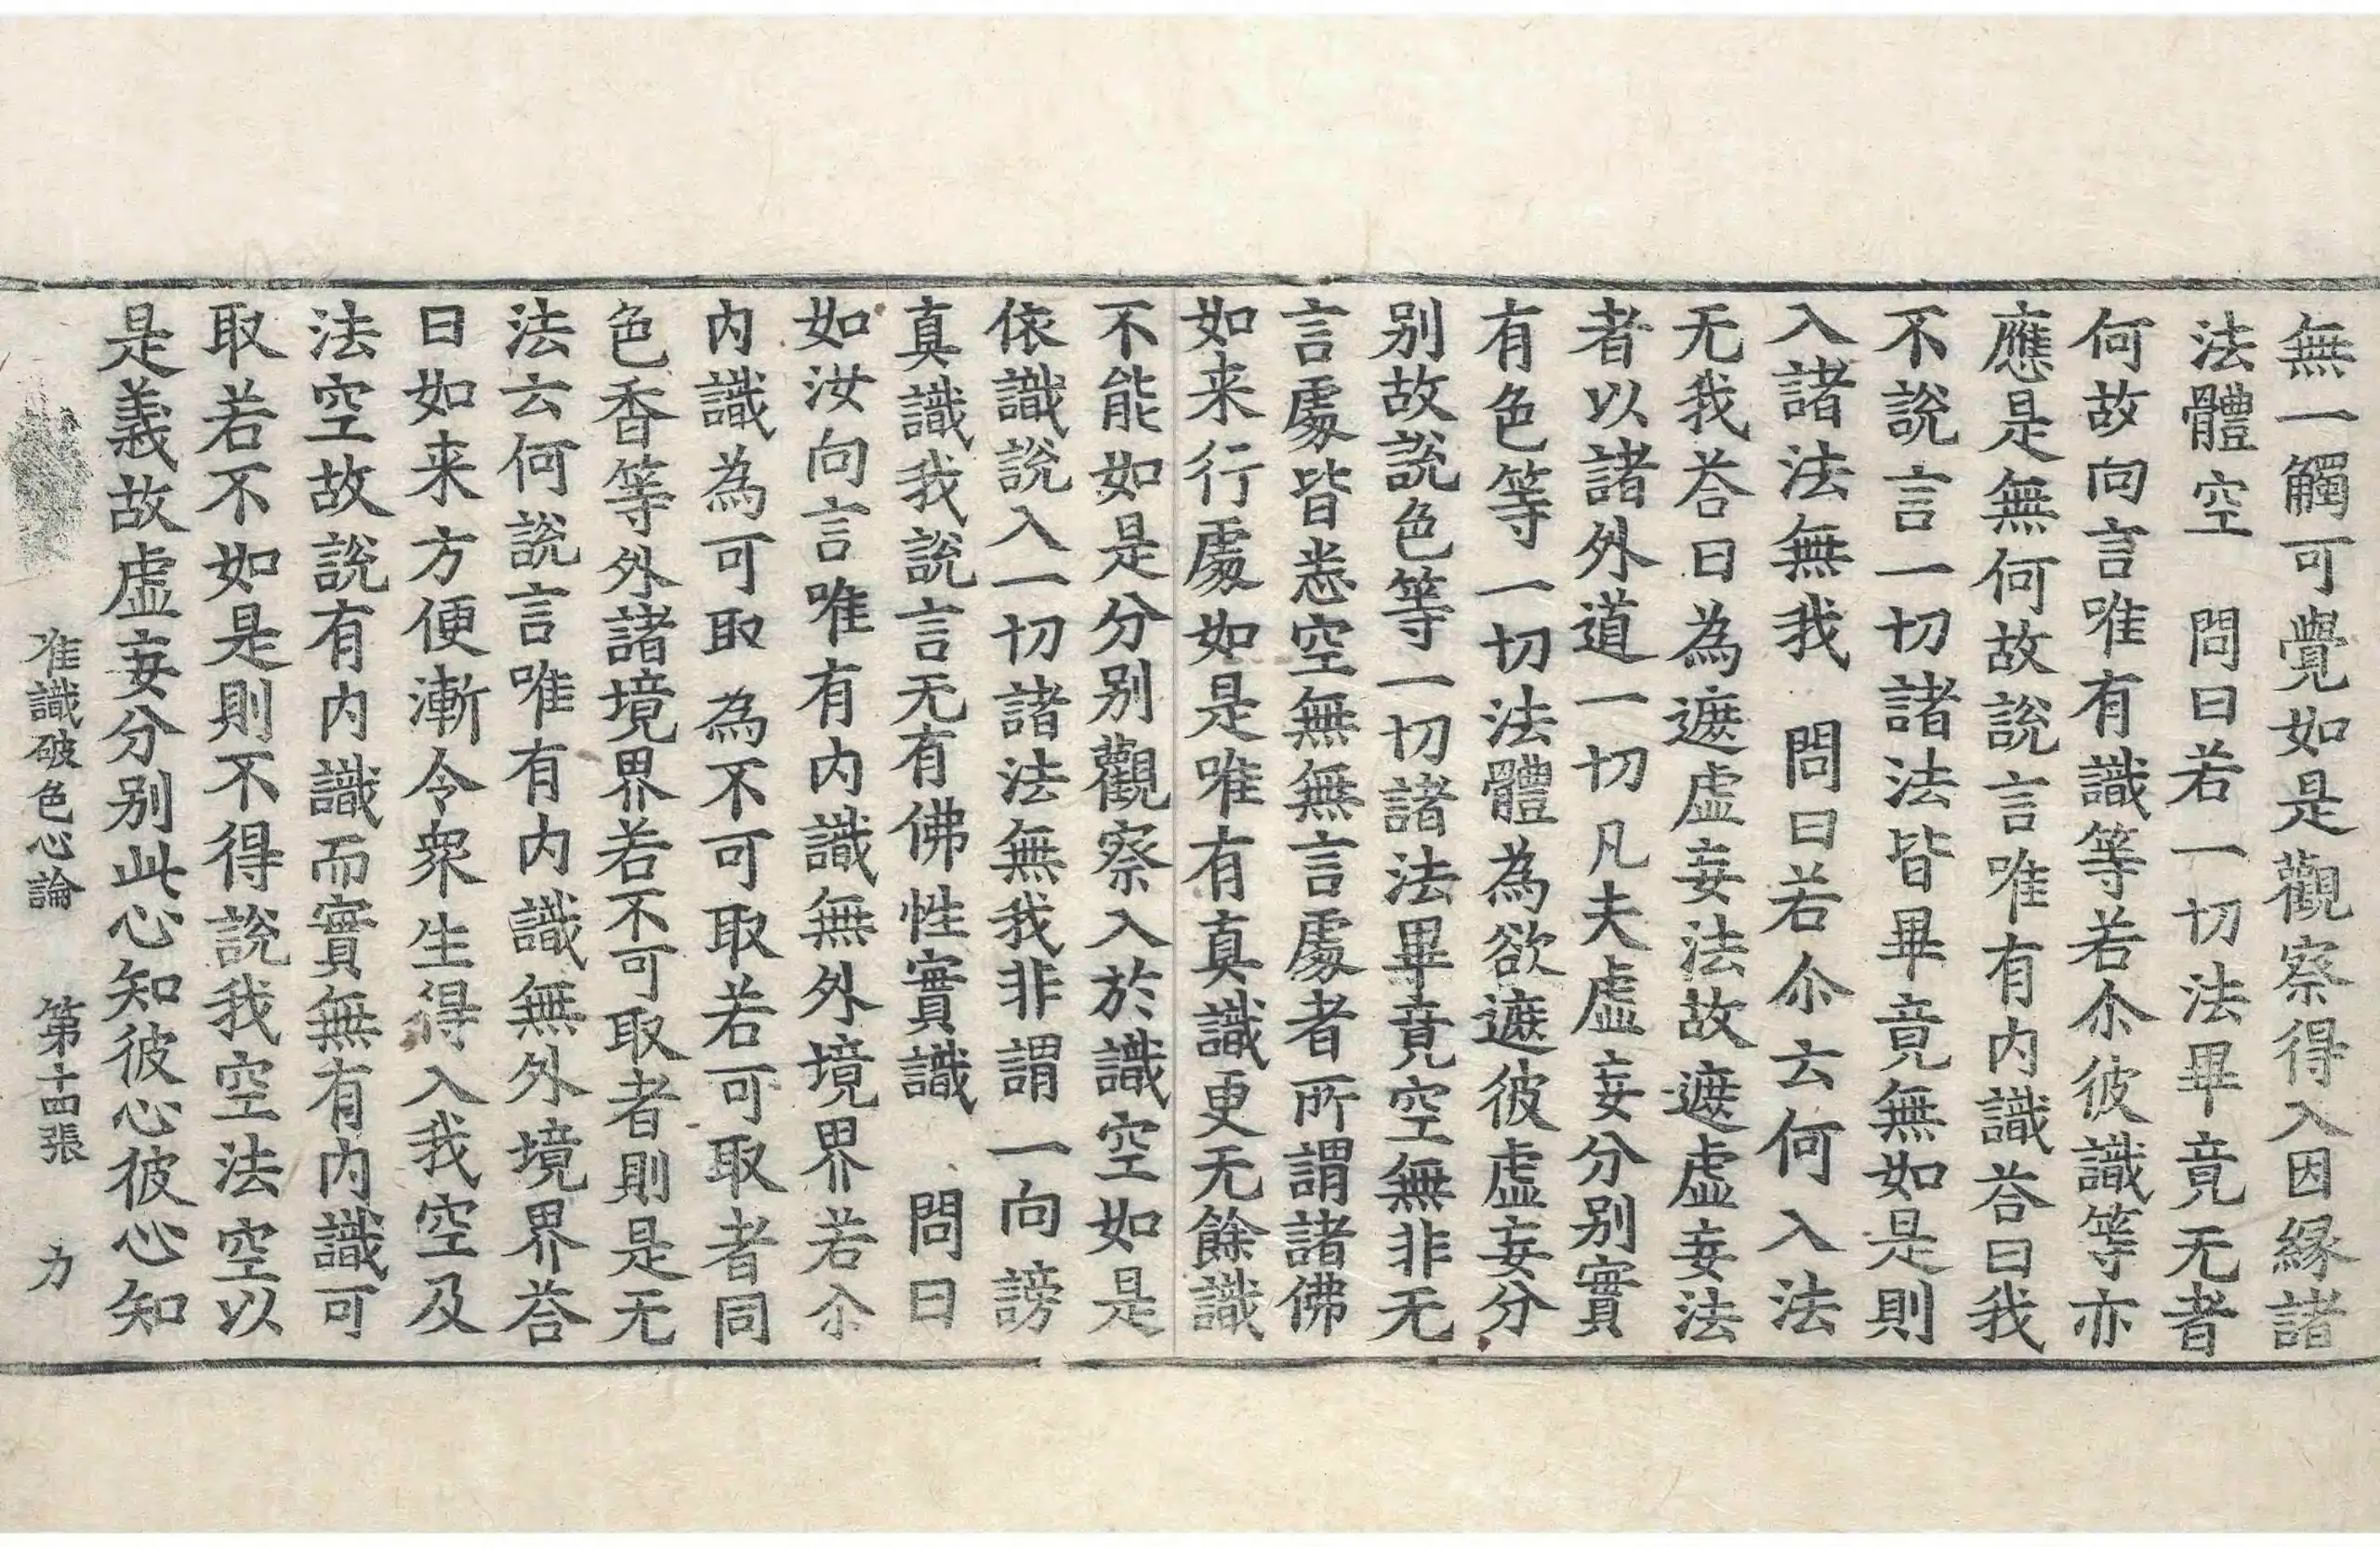 無一觸可覺如是觀察得入因縁諸
法體空 問曰若一切法畢竟无者
何故向言唯有識等若尒彼識等亦
應是無何故說言唯有内識荅曰我
不說言一切諸法皆畢竟無如是則
入諸法無我 問曰若尒云何入法
无我荅曰為遮虛妄法故遮虛妄法
者以諸外道一切凡夫虛妄分别實
有色等一切法體為欲遮彼虛妄分
别故說色等一切諸法畢竟空無非无
言處皆悉空無無言處者所謂諸佛
如来行處如是唯有真識更无餘識
不能如是分别觀察入於識空如是
依識說入一切諸法無我非謂一向謗
真識我說言无有佛性實識 問曰
如汝向言唯有内識無外境界若尒
内識為可取為不可取若可取者同
色香等外諸境界若不可取者則是无
法云何說言唯有内識無外境界荅
曰如来方便漸令衆生得入我空及
法空故說有内識而實無有内識可
取若不如是則不得說我空法空以
是義故虛妄分别此心知彼心彼心知
唯識破色心論 第十四張 力